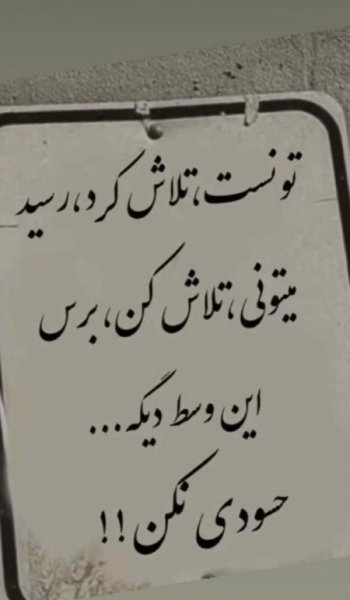 تونست،تلاش کرد،رسید
میتونی،تلاش کن،برس
این وسط دیگه...
حسودی نکن!!